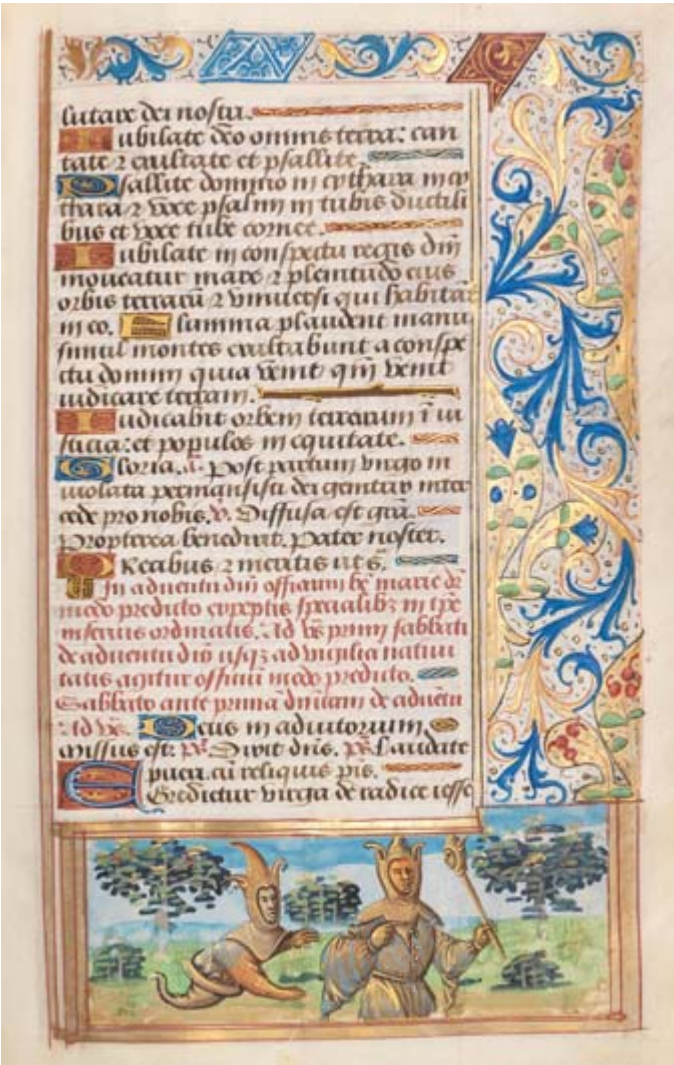 lutare dei nostri.
Iubilate deo omnis terra: can
tate ⁊ exultate et psallite.
Psallite domino in cythara in cy
thara ⁊ voce psalmi in tubis ductili
bus et voce tube cornee.
Iubilate in conspectu regis dni
moueatur mare ⁊ plenitudo eius
orbis terraru ⁊ vniuersi qui habitat
in eo. Flumina plaudent manu
simul montes exultabunt a conspe
ctu domini quia venit qm venit
iudicare terram.
Iudicabit orbem terrarum i iu
sticia: et populos in equitate.
Gloria. a. Post partum virgo in
uiolata permansisti dei genitrix inter
cede pro nobis. v. Diffusa est gra.
Propterea benedixit. Pater noster.
Precibus ⁊ meritis ut s.
In aduentu dni officium be marie
modo predicto exceptis specialibz in tpe
inserius ordinatis. Ad vs primi sabbati
de aduentu dni usqz ad vigilia natiui
tatis agitur officiu modo predicto.
Sabbato ante prima dnicam de aduetu
Ad vs. Deus in adiutorium
Missus est. ps. Dixit dns. ps. Laudate
pueri. cu reliquis pis.
Egredietur virga de radice iesse